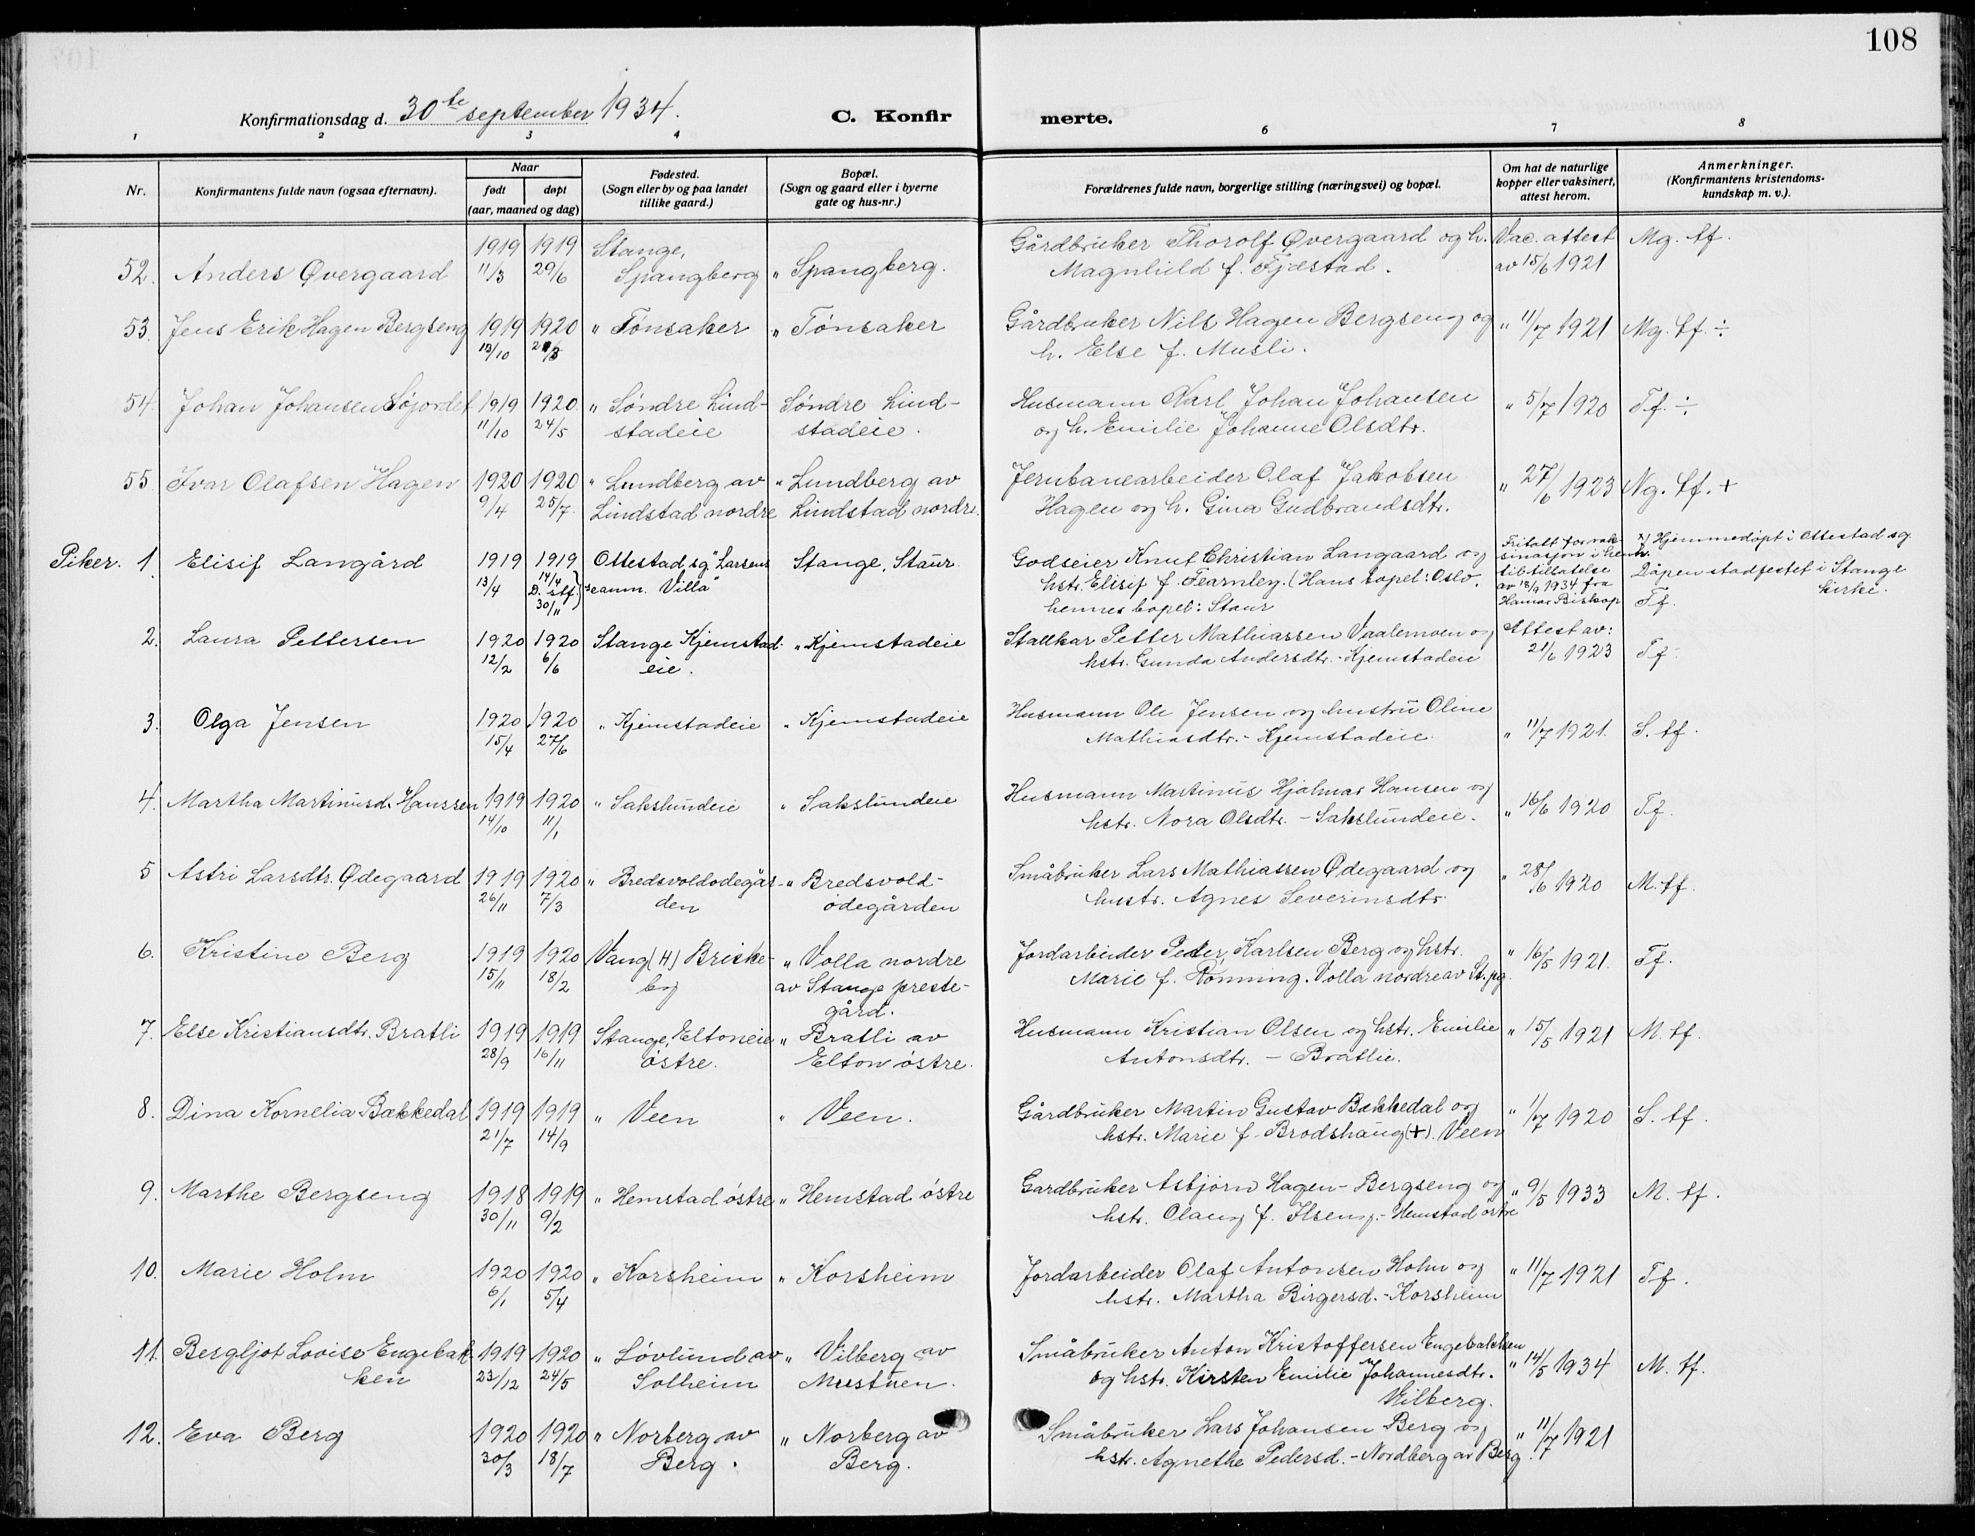 108
Konfirmationsdag d. 30te september 1934.
C. Konfirmerte.
1 2 3 4 6 7 8
Nr.
Konfirmantens fulde navn (ogsaa efternavn).
Naar
født døpt
(aar, maaned og dag)
Fødested.
(Sogn eller by og paa landet
tillike gaard.)
Bopæl.
(Sogn og gaard eller i byerne
gate og hus-nr.)
Forældrenes fulde navn, borgerlige stilling (næringsvei) og bopæl.
Om hat de naturlige
kopper eller vaksinert,
attest herom.
Anmerkninger.
(Konfirmantens kristendoms-
kundskap m. v.).
1919 1919 Stange, Gårdbruker Thorolf Øvergaard og h. Vac. attest Mg. tf.
52. Anders Øvergaard 11/3 29/6 Spangberg " Spangberg. Magnhild f. Fjæstad. av 15/6 1921
53. Jens Erik Hagen Bergseng 1919 1920 " Tønsaker " Tønsaker Gårdbruker Nils Hagen Bergseng og " 11/7 1921 Mg. tf. ÷
13/10 h. Else f. Musli.
54. Johan Johansen Søjordet 1919 1920 " Søndre Lind- Søndre Lind- Husmann Karl Johan Johansen " 5/7 1920 Tf. ÷
11/10 24/5 stadeie stadeie. og h. Emilie Johanne Olsdtr.
55 Ivar Olafsen Hagen 1920 1920 " Lundberg av " Lundberg av Jernbanearbeider Olaf Jakobsen " 27/6 1923 Ng. tf. +
9/4 25/7 Lindstad nordre Lindstad nordre. Hagen og h. Gina Gudbrandsdtr.
Piker. 1. Elisif Langård 1919 1919 Ottestad sg. "Larsens Stange, Staur. Godseier Knut Christian Langaard og Fritatt for vak- Hjemmedøpt i Ottestad sg.
13/4 14/4 D. stf. 30/11 Villa" hstr. Elisif f. Fearnley. (Hans bopel: Oslo, sinasjon i henh. til tillatelse Dåpen stadfestet i Stange kirke.
hennes bopel: Staur av 18/9 1934 fra Hamar Biskop Tf.
2. Laura Pettersen 1920 1920 Stange Kjemstad- " Kjemstadeie Stallkar Petter Mathiassen Vaalemoen og Attest av:
12/2 6/6 eie. hstr. Gunda Andersdtr. - Kjemstadeie 21/6 1923 Tf.
3. Olga Jensen 1920 1920 " Kjemstadeie " Kjemstadeie Husmann Ole Jensen og hustru Oline
15/4 27/6 Mathiasdtr. - Kjemstadeie. " 11/7 1921. S. tf.
4. Martha Martinusd. Hanssen 1919 1920 " Sakslundeie " Sakslundeie Husmann Martinus Hjalmar Hansen og
14/10 11/1 hstr. Nora Olsdtr. - Sakslundeie. " 16/6 1920 Tf.
5 Astri Larsdtr. Ødegaard 1919 1920 " Bredsvoldødegår- " Bredsvold- Småbruker Lars Mathiassen Ødegaard og " 28/6 1920 M. tf.
26/11 7/3 den ødegården hustr. Agnes Severinsdtr.
6. Kristine Berg 1919 1920 Vang (H) Briske- " Volla nordre Jordarbeider Peder Karlsen Berg og hstr. " 16/5 1921. Tf.
15/11 18/2 by av Stange preste- Marie f. Rønning. Volla nordre av St. pg.
gård.
7. Else Kristiansdtr. Bratli 1919 1919 Stange, Eltoneie " Bratli av Husmann Kristian Olsen og hstr. Emilie " 15/5 1921 M. tf.
28/9 16/11 østre. Elton østre. Antonsdtr. - Bratlie.
8. Dina Kornelia Bakkedal 1919 1919 " Veen " Veen. Gårdbruker Martin Gustav Bakkedal og " 1/7 1920 S. tf.
21/7 14/9 hstr. Marie f. Brodshaug (+). Veen
9. Marthe Bergseng 1918 1919 " Hemstad østre " Hemstad østre Gardbruker Asbjørn Hagen-Bergseng og " 9/5 1933 M. tf.
30/11 9/2 hstr. Olaug f. Ilseng. - Hemstad østre
10. Marie Holm 1920 1920 " Korsheim " Korsheim Jordarbeider Olaf Antonsen Holm og " 11/7 1921 Tf.
6/1 5/4 hstr. Martha Birgersd. - Korsheim
11. Bergljot Lovise Engebak- 1919 1920 " Løvlund av " Vilberg av Småbruker Anton Kristoffersen Engebakken " 14/5 1934 M. tf.
ken 23/12 24/5 Solheim Mustuen. og hstr. Kirsten Emilie Johannesdtr.
Vilberg.
12. Eva Berg 1920 1920 " Norberg av " Norberg av Småbruker Lars Johansen Berg og " 11/7 1921
30/3 18/7 Berg. Berg. hstr. Agnethe Pedersd. - Nordberg av Berg.